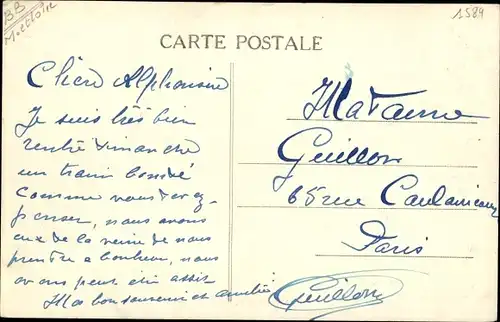 BB
1529
CARTE POSTALE
Chère Alphonsine
Je suis très bien
rentré dimanche
un train bondé
comme vous devez
penser, nous avons
eux de la veine de nous
prendre a bonheur, nous
avons peut être assis
Ma bon souvenir et amitié
Madame
Guillon
65 rue Caulaincourt
Paris
Guillon